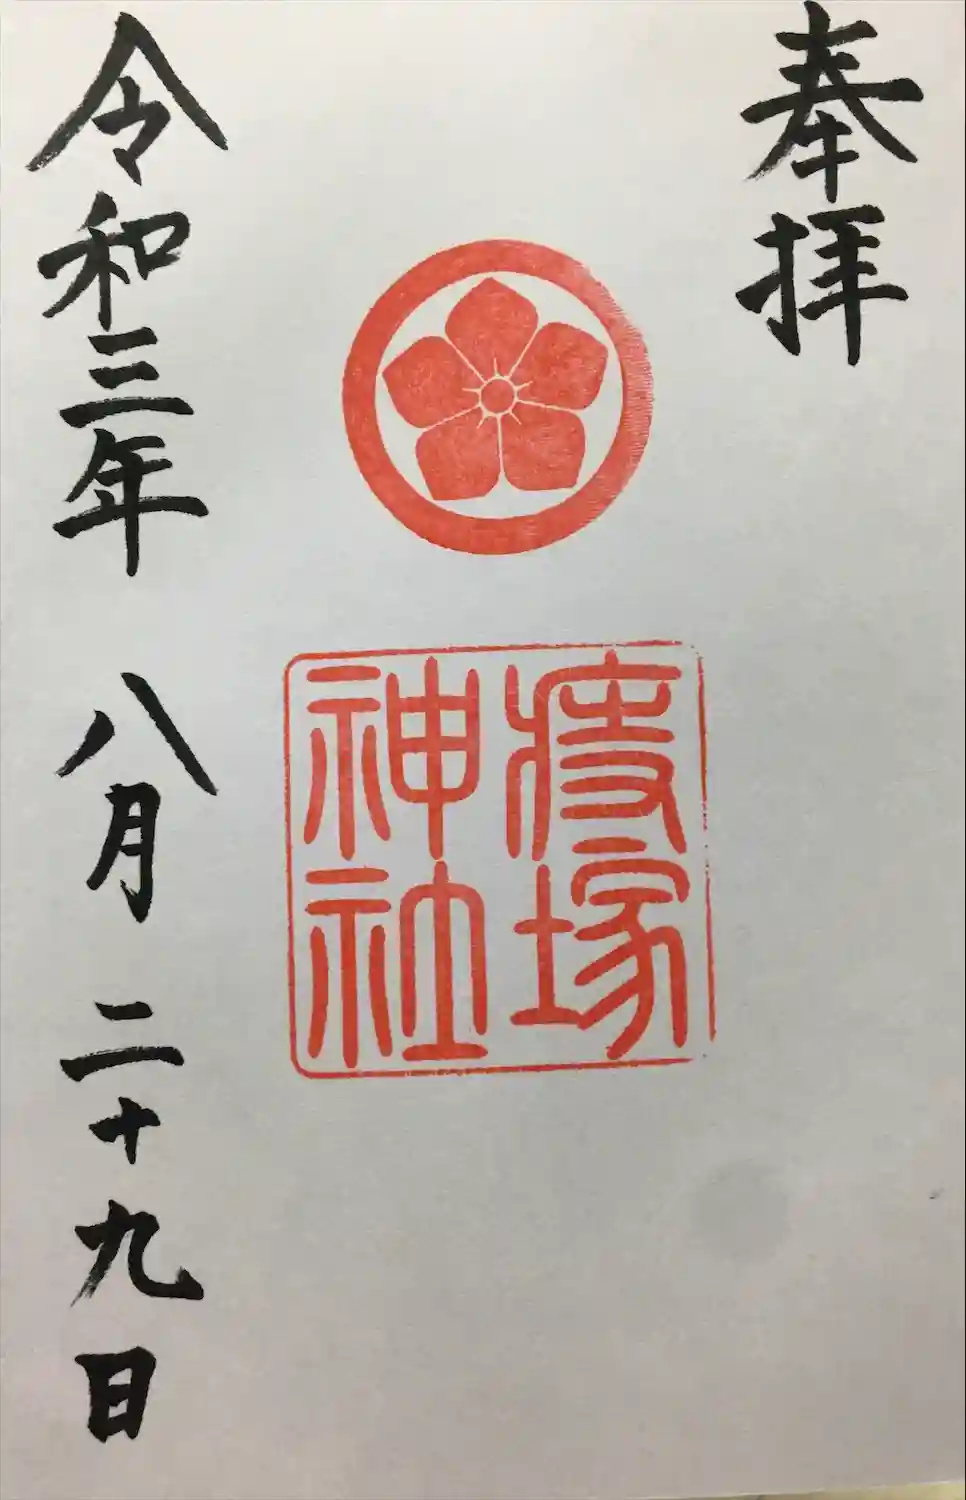 奉拝
塚
神社
令和三年 八月 二十九日